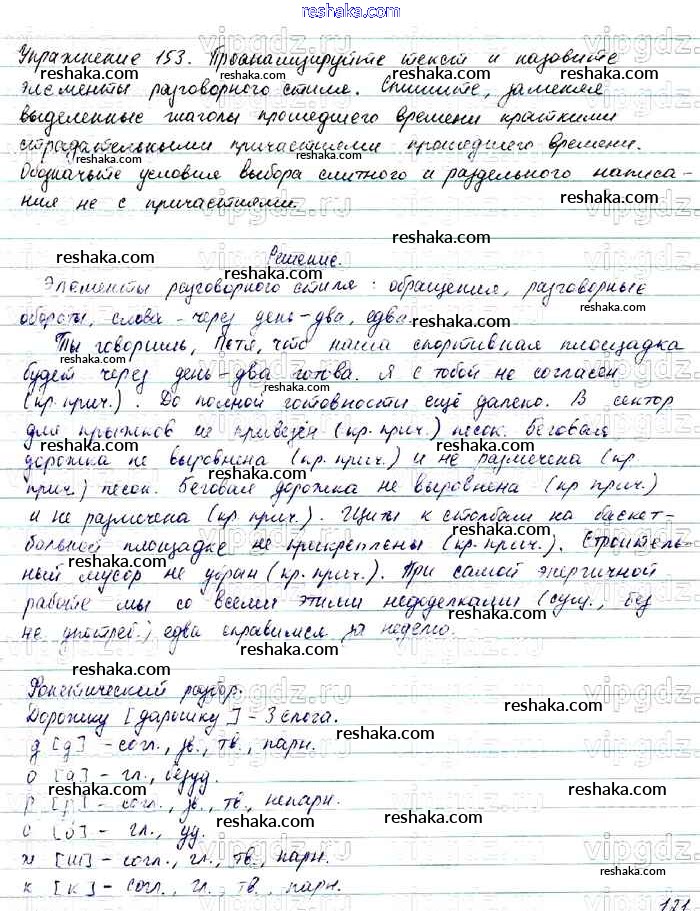 reshaka.com
Упражнение 153. Проанализируйте текст и назовите
элементы разговорного стиля. Спишите, заменяя
выделенные глаголы прошедшего времени краткими
страдательными причастиями прошедшего времени.
Обозначьте условия выбора слитного и раздельного написа-
ния не с причастиями.
Решение.
Элементы разговорного стиля: обращения, разговорные
обороты, слова - через день-два, едва.
Ты говоришь, Петя, что наша спортивная площадка
будет через день-два готова. Я с тобой не согласен
(кр. прич.). До полной готовности ещё далеко. В сектор
для прыжков не привезён (кр. прич.) песок. Беговая
дорожка не выровнена (кр. прич.) и не размечена (кр.
прич.) песок. Беговая дорожка не выровнена (кр прич.)
и не размечена (кр. прич.). Щиты к столбам на баскет-
больной площадке не прикреплены (кр. прич.). Строитель-
ный мусор не убран (кр. прич.). При самой энергичной
работе мы со всеми этими недоделками (сущ., без
не употреб.) едва справимся за неделю.
Фонетический разбор.
Дорожку [дарошку] - 3 слога.
д [д] - согл., зв., тв., парн.
о [а] - гл., безуд.
р [р] - согл., зв., тв., непарн.
о [о] - гл., уд.
ж [ш] - согл., гл., тв., парн.
к [к] - согл., гл., тв., парн.
121